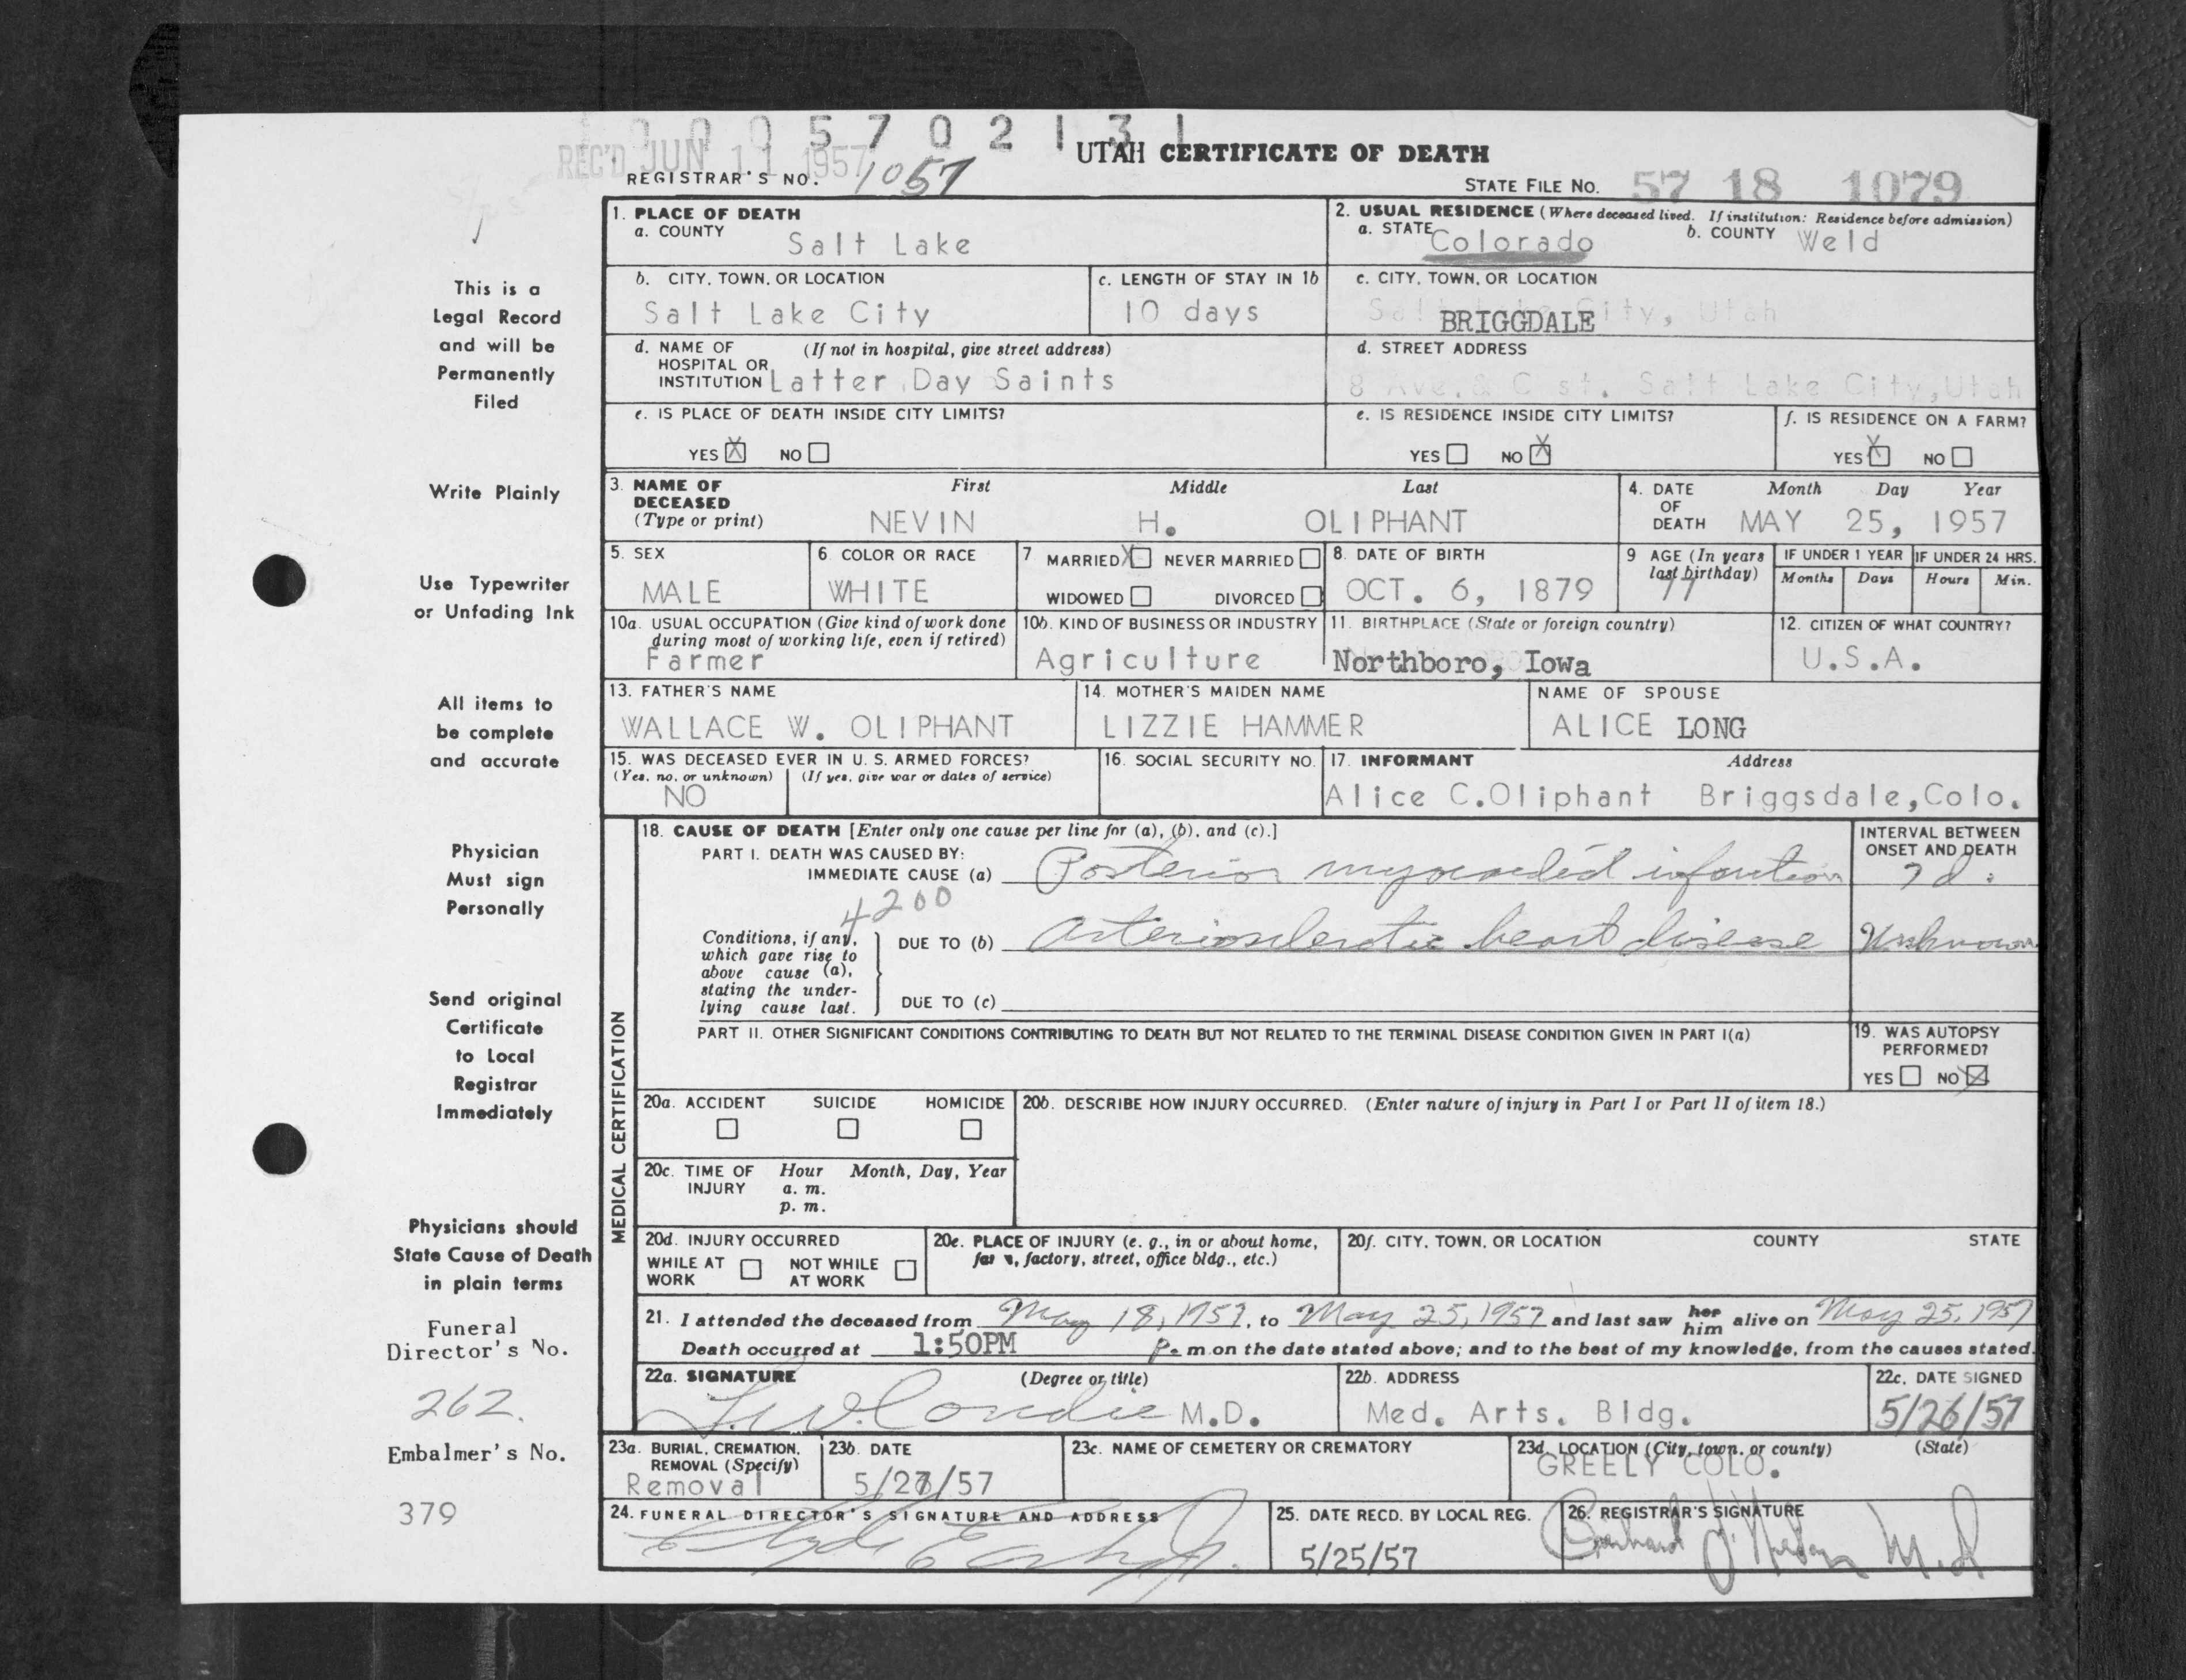 0005702131
REC'D JUN 11 1957
UTAH CERTIFICATE OF DEATH
REGISTRAR'S NO. 1057
STATE FILE NO. 57 18 1079
This is a
Legal Record
and will be
Permanently
Filed
Write Plainly
Use Typewriter
or Unfading Ink
All items to
be complete
and accurate
Physician
Must sign
Personally
Send original
Certificate
to Local
Registrar
Immediately
Physicians should
State Cause of Death
in plain terms
Funeral
Director's No.
262.
Embalmer's No.
379
1. PLACE OF DEATH
a. COUNTY
Salt Lake
2. USUAL RESIDENCE (Where deceased lived. If institution: Residence before admission)
a. STATE Colorado b. COUNTY Weld
b. CITY, TOWN, OR LOCATION
Salt Lake City
c. LENGTH OF STAY IN 1b
10 days
c. CITY, TOWN, OR LOCATION
Salt Lake City, Utah
BRIGGDALE
d. NAME OF (If not in hospital, give street address)
HOSPITAL OR
INSTITUTION Latter Day Saints
d. STREET ADDRESS
8 Ave. & C st. Salt Lake City, Utah
e. IS PLACE OF DEATH INSIDE CITY LIMITS?
YES X NO
e. IS RESIDENCE INSIDE CITY LIMITS?
YES NO X
f. IS RESIDENCE ON A FARM?
YES X NO
3. NAME OF DECEASED (Type or print)
First Middle Last
NEVIN H. OLIPHANT
4. DATE OF DEATH
Month Day Year
MAY 25, 1957
5. SEX
MALE
6. COLOR OR RACE
WHITE
7 MARRIED X NEVER MARRIED
WIDOWED DIVORCED
8. DATE OF BIRTH
OCT. 6, 1879
9 AGE (In years last birthday)
77
IF UNDER 1 YEAR
Months Days
IF UNDER 24 HRS.
Hours Min.
10a. USUAL OCCUPATION (Give kind of work done
during most of working life, even if retired)
Farmer
10b. KIND OF BUSINESS OR INDUSTRY
Agriculture
11. BIRTHPLACE (State or foreign country)
Northboro, Iowa
12. CITIZEN OF WHAT COUNTRY?
U.S.A.
13. FATHER'S NAME
WALLACE W. OLIPHANT
14. MOTHER'S MAIDEN NAME
LIZZIE HAMMER
NAME OF SPOUSE
ALICE LONG
15. WAS DECEASED EVER IN U. S. ARMED FORCES?
(Yes, no, or unknown) (If yes, give war or dates of service)
NO
16. SOCIAL SECURITY NO.
17. INFORMANT Address
Alice C.Oliphant Briggsdale,Colo.
MEDICAL CERTIFICATION
18. CAUSE OF DEATH [Enter only one cause per line for (a), (b), and (c).]
PART I. DEATH WAS CAUSED BY:
IMMEDIATE CAUSE (a) Posterior myocardial infarction
INTERVAL BETWEEN
ONSET AND DEATH
7 d.
4200
Conditions, if any,
which gave rise to
above cause (a),
stating the under-
lying cause last.
DUE TO (b) Arteriosclerotic heart disease Unknown
DUE TO (c)
PART II. OTHER SIGNIFICANT CONDITIONS CONTRIBUTING TO DEATH BUT NOT RELATED TO THE TERMINAL DISEASE CONDITION GIVEN IN PART I(a)
19. WAS AUTOPSY
PERFORMED?
YES NO X
20a. ACCIDENT SUICIDE HOMICIDE
20b. DESCRIBE HOW INJURY OCCURRED. (Enter nature of injury in Part I or Part II of item 18.)
20c. TIME OF INJURY
Hour Month, Day, Year
a. m.
p. m.
20d. INJURY OCCURRED
WHILE AT WORK NOT WHILE AT WORK
20e. PLACE OF INJURY (e. g., in or about home,
farm, factory, street, office bldg., etc.)
20f. CITY, TOWN, OR LOCATION COUNTY STATE
21. I attended the deceased from May 18, 1957, to May 25, 1957 and last saw her him alive on May 25, 1957
Death occurred at 1:50PM P. m on the date stated above; and to the best of my knowledge, from the causes stated.
22a. SIGNATURE (Degree or title)
L.W. Condie M.D.
22b. ADDRESS
Med. Arts. Bldg.
22c. DATE SIGNED
5/26/57
23a. BURIAL, CREMATION,
REMOVAL (Specify)
Removal
23b. DATE
5/27/57
23c. NAME OF CEMETERY OR CREMATORY
23d. LOCATION (City, town, or county) (State)
GREELY COLO.
24. FUNERAL DIRECTOR'S SIGNATURE AND ADDRESS
Clyde E
25. DATE RECD. BY LOCAL REG.
5/25/57
26. REGISTRAR'S SIGNATURE
M.D